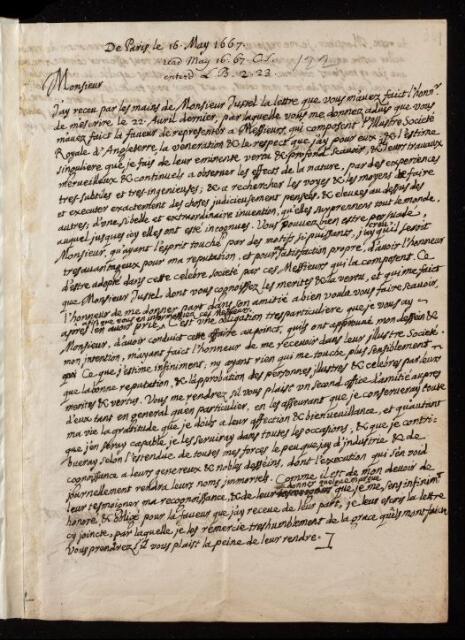 De Paris le 16. May 1667.
read May 16. 67. O.S.
enterd L.B. 2. 23
Monsieur
J'ay receu par les mains de Monsieur Justel la lettre que vous m'avez faict l'honr
de m'escrire le 22. Avril dernier, par laquelle vous me donnez aduis que vous
m'avez faict la faueur de representer a Messieurs qui composent l'Illustre Societé
Royale d'Angleterre, la veneration & le respect que j'ay pour eux, & l'estime
singuliere que je fais de leur eminente vertu & profond sçauoir, & de leurs trauaux
merueilleux & continuels a obseruer les effects de la nature, par des experiences
tres-subtiles et tres-ingenieuses; & a rechercher les voyes & les moyens de faire
et executer exactement des choses judicieusement pensés, & eleuees au dessus des
autres; d'une si belle et extraordinaire inuention, qu'elles surprennent tout le monde,
auquel jusques icy elles ont esté incognues. Vous pouuez bien estre persuadé,
Monsieur, qu'ayant l'esprit touché par des motifs si puissants, j'ay creu qu'il seroit
tresauantageux pour ma reputation, et pour satisfaction propre, d'auoir l'honneur
d'estre adopté dans cette celebre Societé par ces Messieurs qui la composent. Ce
que Monsieur Justel, dont vous cognoissez les merites & la vertu, et qui me faict
l'honneur de me donner part dans son amitié a bien voulu vous faire sçauoir,
apres l'en auoir prié, afin que vous en informassiez ces Messieurs. C'est une obligation tresparticuliere que je vous ay
Monsieur, d'auoir conduit cette affaire au poinct, qu'ils ont approuué mon dessein &
mon intention, m'ayant faict l'honneur de me receuoir dans leur Illustre Societé.
Ce que j'estime infiniment, n'y ayant rien qui me touche plus sensiblement
que la bonne reputation, & l'approbation des personnes illustres & celebres par leurs
merites & vertus. Vous me rendrez s'il vous plaist un second office d'amitié aupres
d'eux tant en general qu'en particulier, en les asseurant que je conserueray toute
ma vie la gratitude que je dois a leur affection & bienueuillance, et qu'autant
que j'en seray capable, je les seruiray dans toutes les occasions, & que je contri-
bueray selon l'estendue de toutes mes forces le peu que j'ay d'industrie & de
cognoissance a leurs genereux & nobles desseins, dont l'execution qui s'en void
journellement rendra leurs noms immortels. Comme il est de mon deuoir de
leur tesmoigner ma recognoissance, & de leur donner quelque marque que je me sens infinimt
honoré, & obligé pour la faueur que j'ay receue de leur part, je leur escris la lettre
cy joincte, par laquelle je les remercie treshumblement de la grace qu'ils m'ont faicte
Vous prendrez s'il vous plaist la peine de leur rendre.